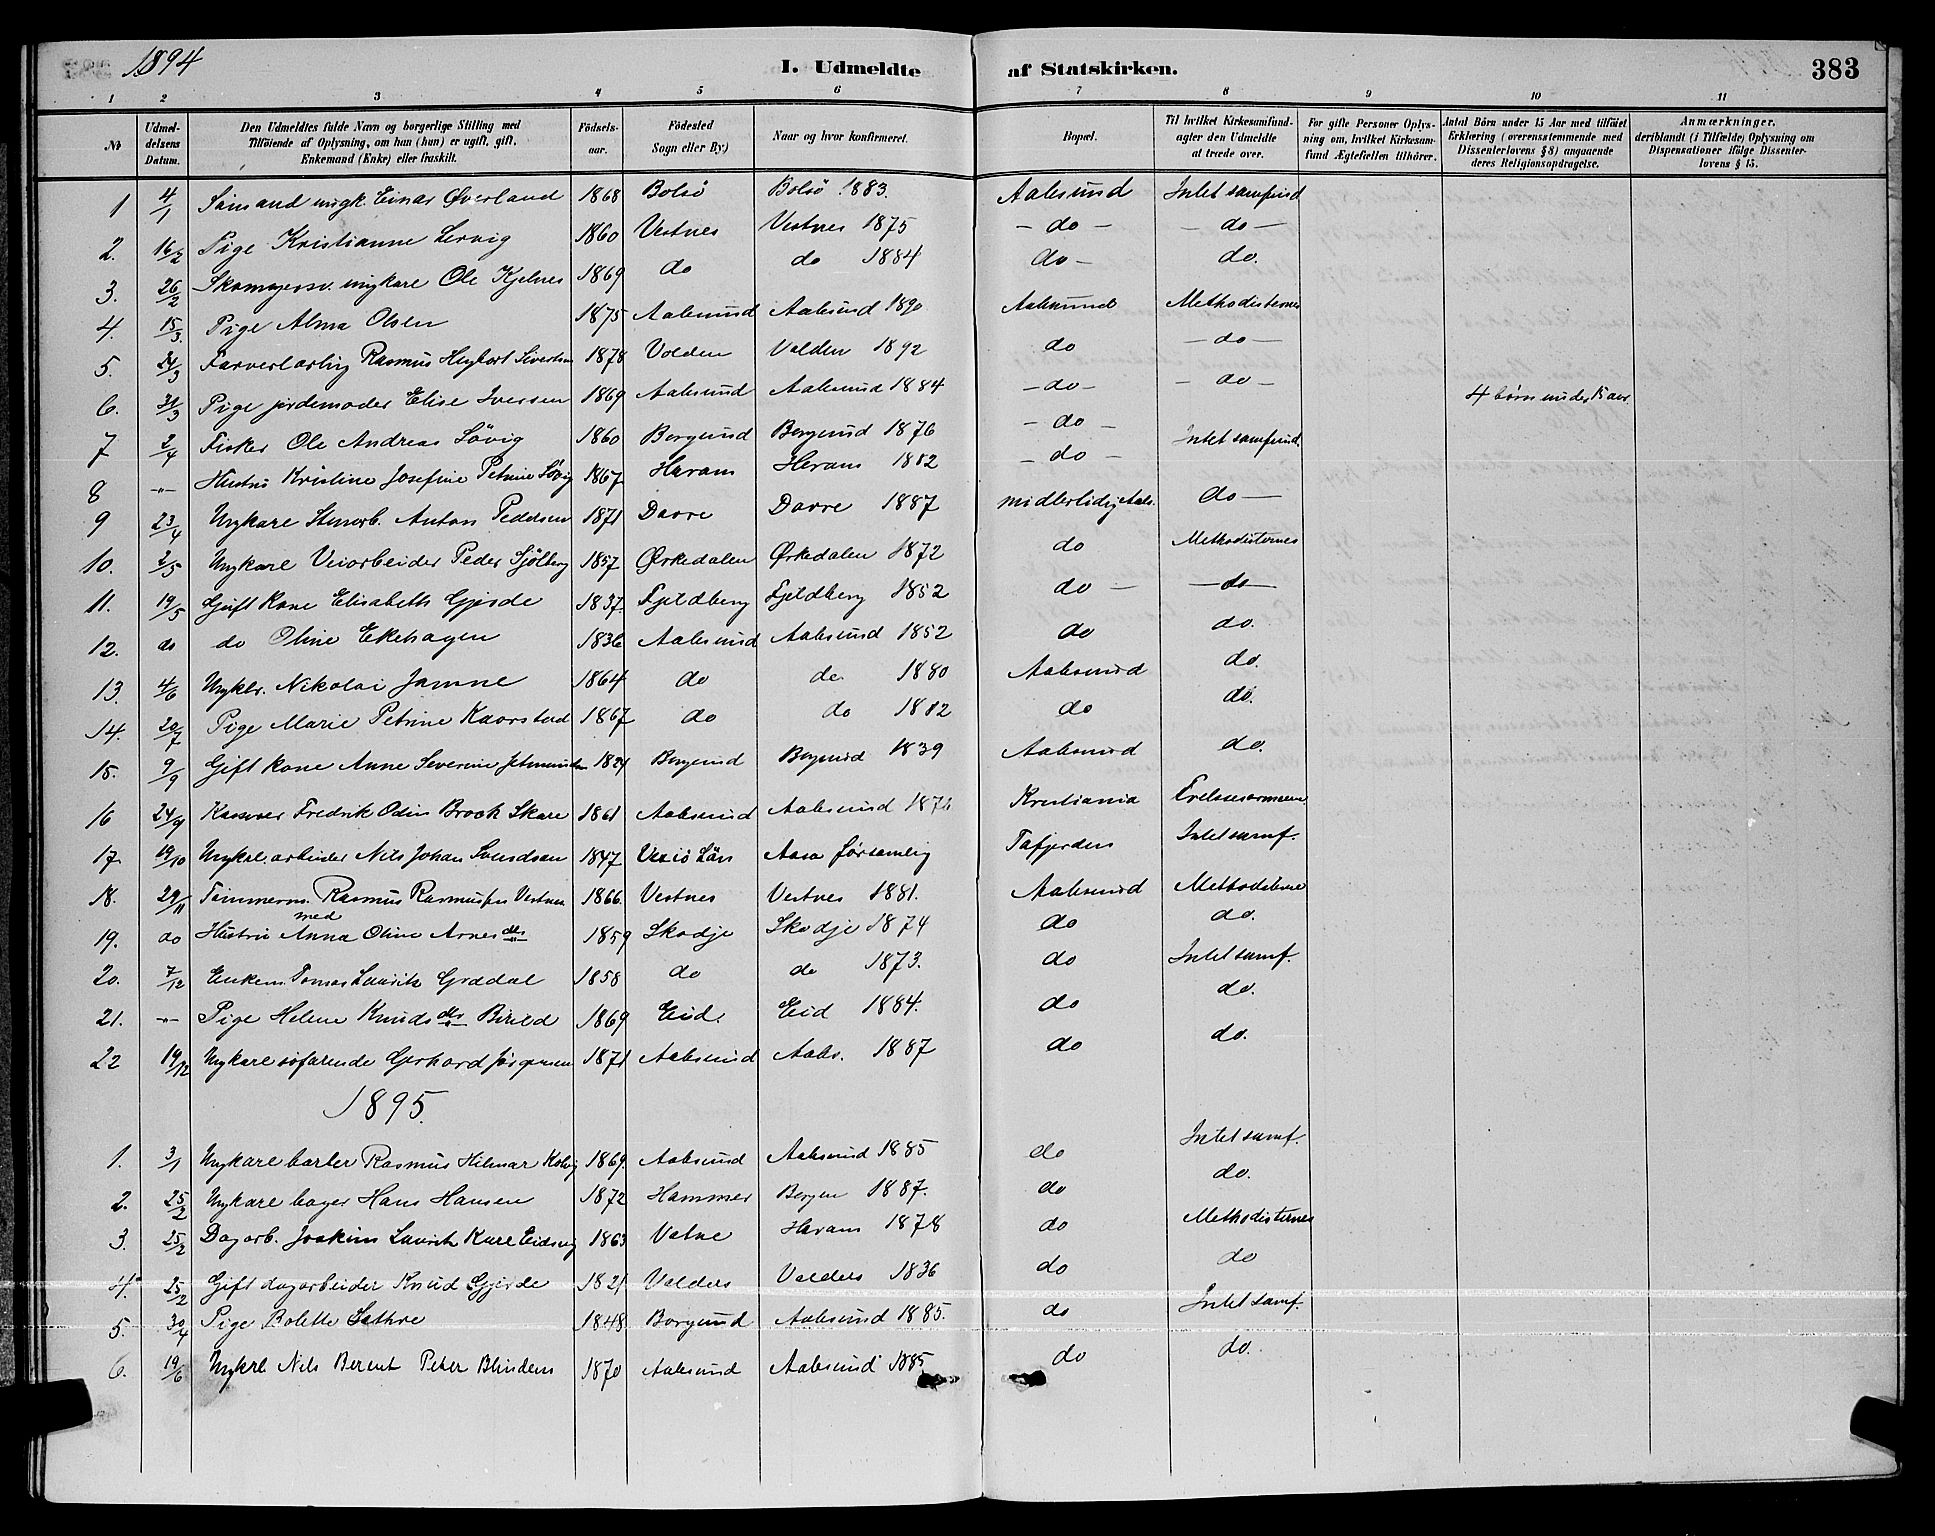 1894 I. Udmeldte af Statskirken. 383
1 2 3 4 5 6 7 8 9 10 11
No Udmeldelsens Datum. Den Udmeldtes fulde Navn og borgerlige Stilling med Tilföiende af Oplysning, om han (hun) er ugift, gift, Enkemand (Enke) eller fraskilt. Födselsaar. Födested Sogn eller By) Naar og hvor konfirmeret. Bopæl. Til hvilket Kirkesamfund agter den Udmeldte at træde over. For gifte Personer Oplysning om, hvilket Kirkesamfund Ægtefællen tilhörer. Antal Börn under 15 Aar med tilföiet Erklæring (overensstemmende med Dissenterlovens § 8) angaaende deres Religionsopdragelse. Anmærkninger. deriblandt (i Tilfælde) Oplysning om Dispensationer ifölge Dissenterlovens § 15.
1 4/1 Sömand ungk. Einar Øverland 1868 Bolsö Bolsö 1883. Aalesund Intet samfund
2. 16/2 Pige Kristianne Lervig 1860 Vestnes Vestnes 1875 - do - - do -
3. 26/2 Skomagersv. ungkare Ole Kjelnes 1869 do do 1884 do - do.
4. 15/3 Pige Alma Olsen 1875 Aalesund Aalesund 1890 Aalesund Methodisternes
5. 24/3 Farverlærling Rasmus Hegbert Sivertsen 1878 Volden Volden 1892 do - do -
6. 31/3 Pige jordemoder Elise Iversen 1869 Aalesund Aalesund 1884 - do - - do - 4 börn under 15 aar.
7 2/4 Fisker Ole Andreas Lövig 1860 Borgund Borgund 1876 - do - Intet samfund.
8 -"- Hustru Kristine Josefine Petrine Lövig 1867 Haram Haram 1882 - do -
9 23/4 Ungkare Stenarb. Anton Pedersen 1871 Dovre Dovre 1887 midlertidig Aales. do -
10. 2/5 Ungkare Veiarbeider Peder Sjölberg 1857 Ørkedalen Ørkedalen 1872 do Methodisternes
11. 19/5 Gift Kone Elisabeth Gjerde 1837. Fjeldberg Fjeldberg 1852 do - - do -
12. do do Oline Ekehagen 1836 Aalesund Aalesund 1852 do do.
13. 4/6 Ungkr. Nikolai Jamne 1864 do do 1880 Aalesund do.
14. 20/7 Pige Marie Petrine Kaarstad 1867 do do 1882 do do.
15. 9/9 Gift Kone Anne Severine 1824 Borgund Borgund 1839 Aalesund do.
16 24/9 Kasserer Fredrik Odin Brock Skare 1861 Aalesund Aalesund 1876 Kristiania Frelsesarmeen
17. 19/10 Ungkrl arbeider Nils Johan Svendsen 1847 Vexiö Län Aasa församling Tafjorden Intet samf.
18. 29/11 Tömmerm. Rasmus Rasmussen Vestnes 1866. Vestnes Vestnes 1881. Aalesund Methodisterne
19. do Hustru med Anna Oline Arnesdtr 1859 Skodje Skodje 1874 do do.
20. 7/12 Enkem. Tomas Lauritz Grødal 1858 do do 1873. do Intet samf.
21. -"- Pige Helene Knudsdtr Birkld 1869 Eid. Eid 1884. do do.
22 19/12 Ungkare söfarende Gerhard Jörgensen 1871 Aalesund Aales. 1887 do do.
1895.
1. 3/1 Ungkare barber Rasmus Hilmar 1869. Aalesund Aalesund 1885 do Intet samf.
2. 25/2 Ungkare bager Hans Hansen 1872 Hammer Bergen 1887. do do.
3. 25/2 Dagarb. Joakim Laurits Kare Eidsvig 1863 Vatne Haram 1878 do Methodisternes
4. 25/2 Gift dagarbeider Knud Gjerde 1821 Valders Valders 1836 do do
5. 30/4 Pige Bolette Sethre 1848 Borgund Aalesund 1885. do Intet samf.
6. 19/6 Ungkrl Nils Berent Peter Blindem 1870 Aalesund Aalesund 1885 do do.